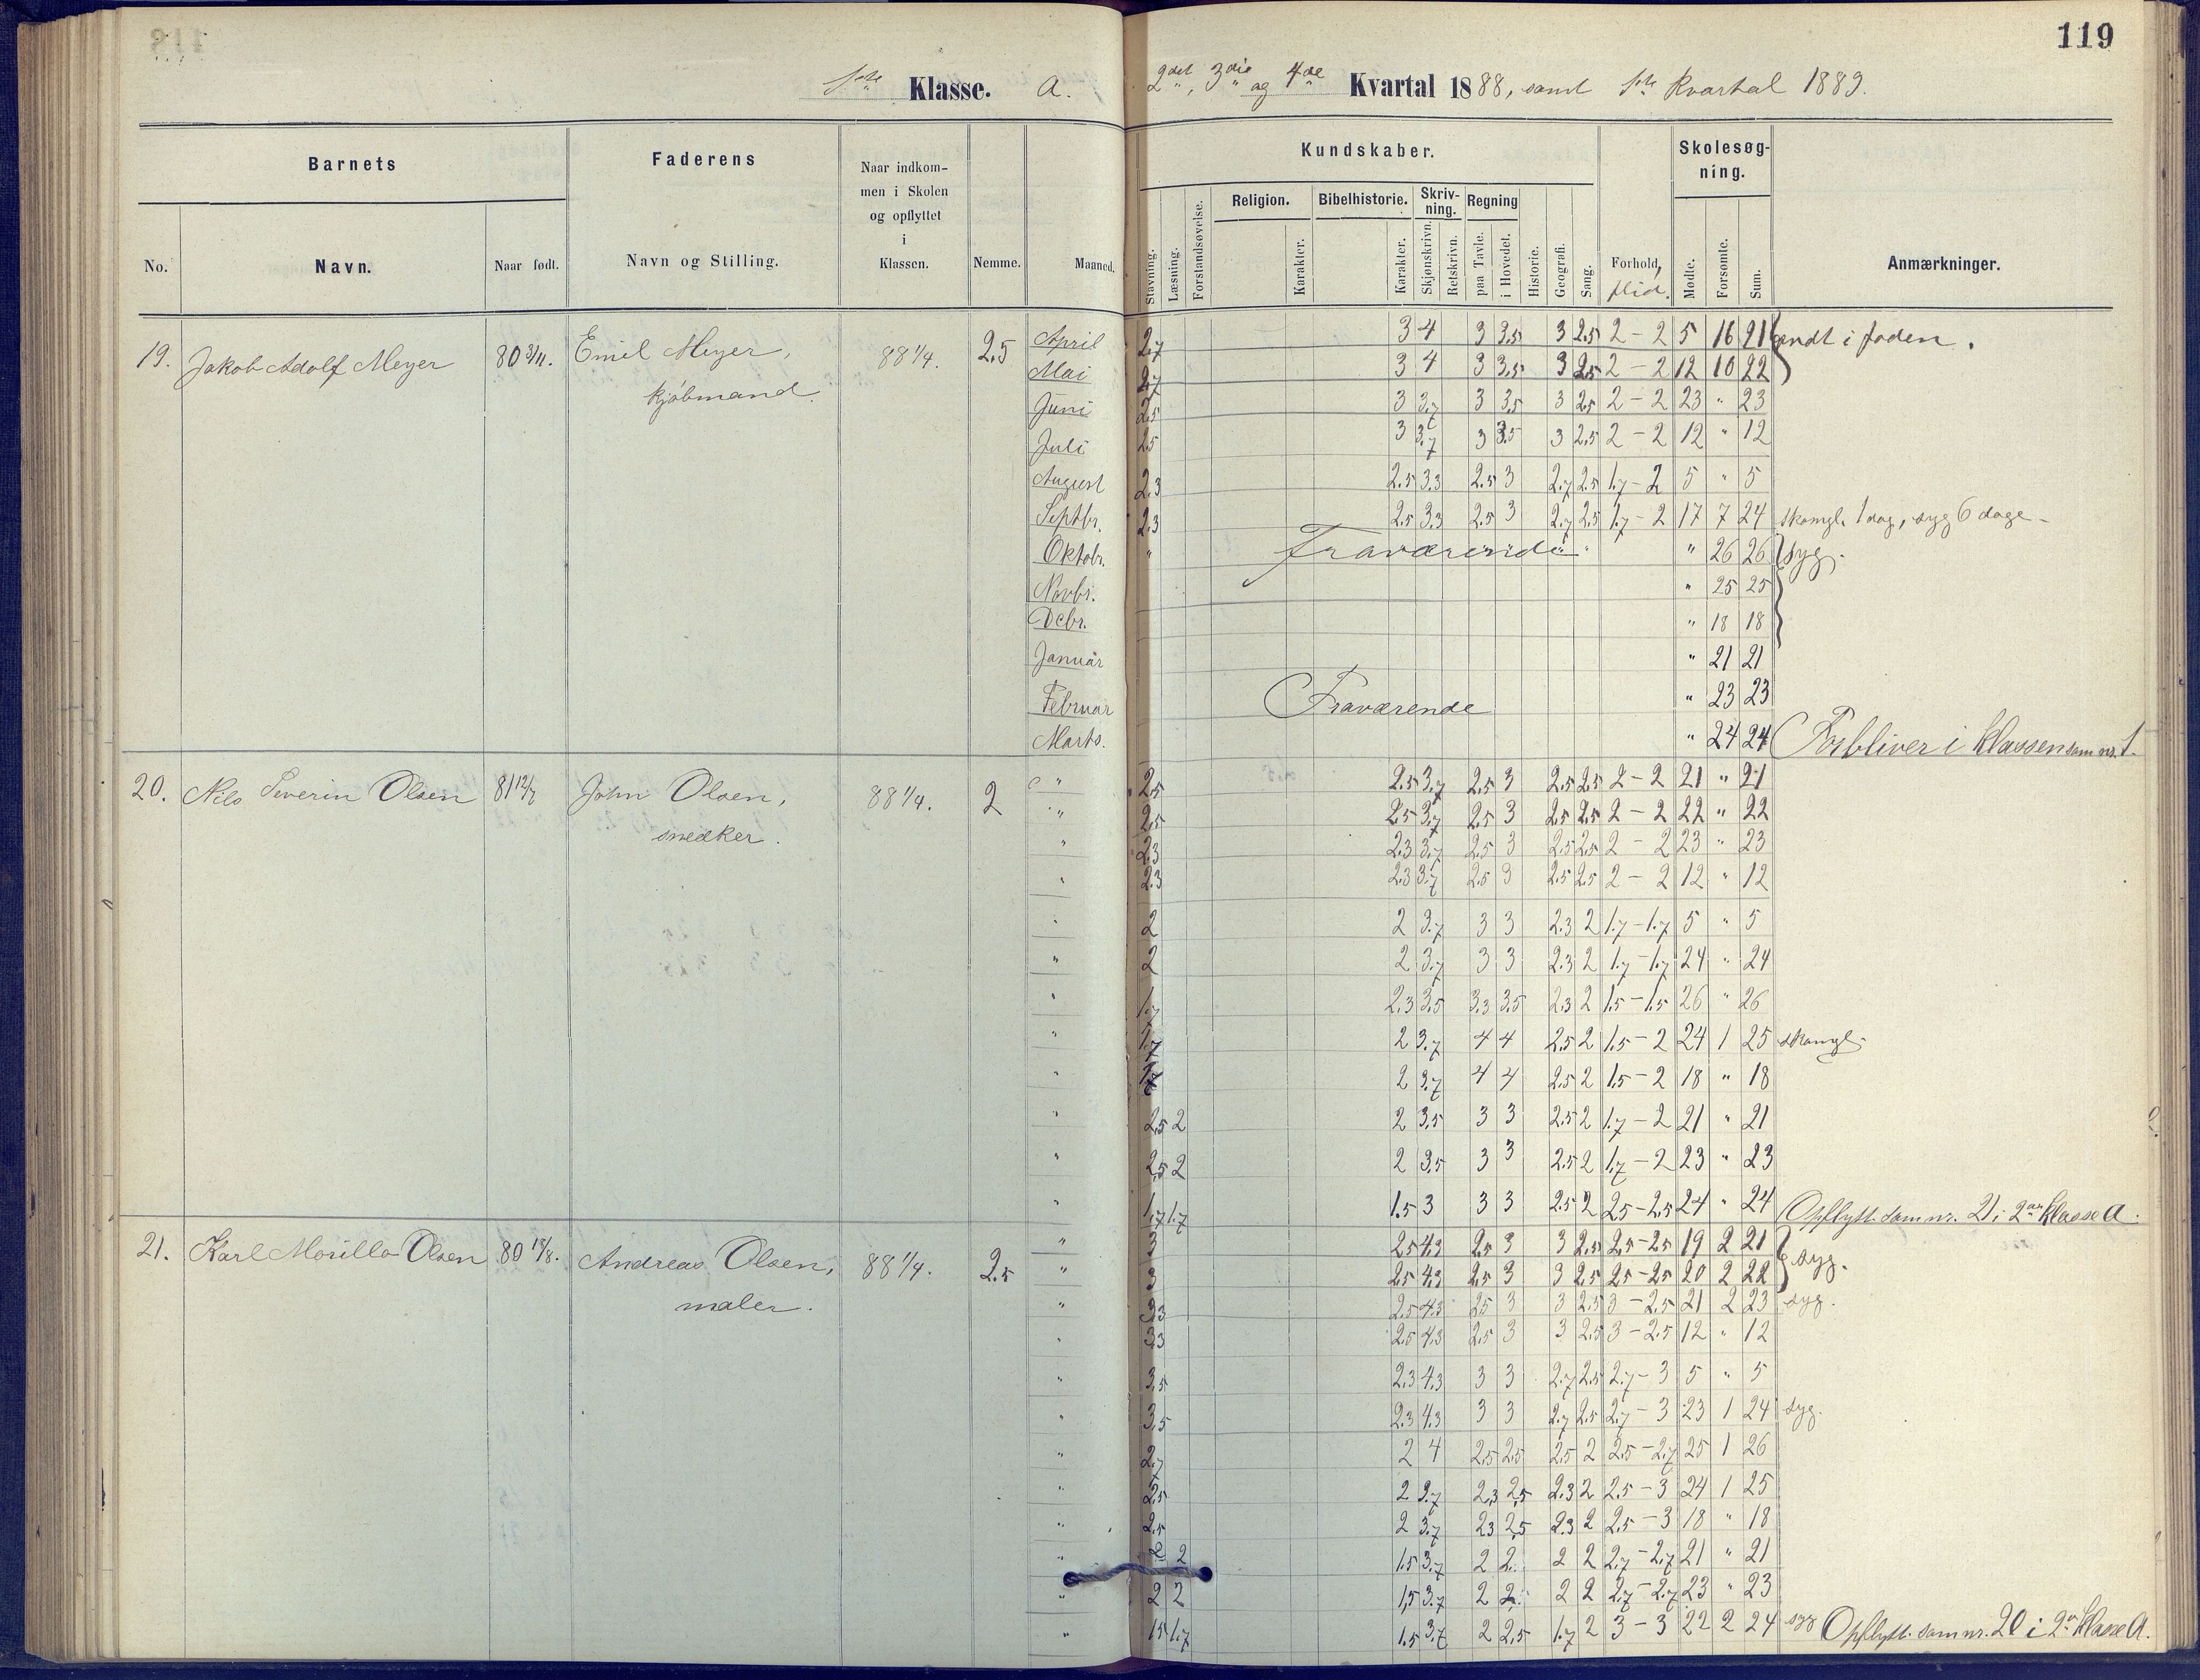 119
1ste Klasse. a. 2det, 3die og 4de Kvartal 1888, samt 1ste Kvartal 1889.
Barnets Faderens Naar indkom- men i Skolen og opflyttet i Klassen. Nemme. Maaned. Kundskaber. Skolesøg- ning. Anmærkninger.
No. Navn. Naar født. Navn og Stilling.
Stavning. Læsning. Forstandsøvelse. Religion. Karakter. Bibelhistorie. Karakter. Skriv- ning. Skjønskrivn. Retskrivn. Regning paa Tavle. i Hovedet. Historie. Geografi. Sang. Forhold, flid. Mødte. Forsømte. Sum.
19. Jakob Adolf Meyer 80 3/11. Emil Meyer, kjøbmand. 88 1/4. 2,5
April 2,7 3 4 3 3,5 3 2,5 2 - 2 5 16 21 ondt i foden.
Mai 2,7 3 4 3 3,5 3 2,5 2 - 2 12 10 22
Juni 2,5 3 3,7 3 3,5 3 2,5 2 - 2 23 " 23
Juli 2,5 3 3,7 3 3,5 3 2,5 2 - 2 12 " 12
August 2,3 2.5 3.3 2.5 3 2.7 2.5 1.7 - 2 5 " 5
Septbr. 2.3 2.5 3.3 2.5 3 2.7 2.5 1.7 - 2 17 7 24 skamgl. 1 dag, syg 6 dage
Oktobr. " Fraværende " 26 26 syg.
Novbr. " 25 25
Debr. " 18 18
Januar " 21 21
Februar Fraværende " 23 23
Marts. " 24 24 Forbliver i klassen som nr. 1.
20. Nils Severin Olsen 81 12/7 John Olsen, snedker. 88 1/4. 2
" 2,5 2.5 3,7 2.5 3 2.5 2.5 2 - 2 21 " 21
" 2,5 2.5 3,7 2.5 3 2.5 2.5 2 - 2 22 " 22
" 2.3 2.3 3.7 2.5 3 2.5 2.5 2 - 2 23 " 23
" 2.3 2.3 3.7 2.5 3 2.5 2.5 2 - 2 12 " 12
" 2 2 3.7 3 3 2.3 2 1.7 - 1.7 5 " 5
" 2 2 3.7 3 3 2.3 2 1.7 - 1.7 24 " 24
" 1.7 2.3 3.5 3.3 3.5 2.3 2 1.5 - 1.5 26 " 26
" 1.7 2 3.7 4 4 2.5 2 1.5 - 2 24 1 25 skamgl.
" 1.7 2 3.7 4 4 2.5 2 1.5 - 2 18 " 18
" 2,5 2 2 3,5 3 3 2.5 2 1.7 - 2 21 " 21
" 2,5 2 2 3,5 3 3 2.5 2 1.7 - 2 23 " 23
" 1.7 1.7 1.5 3 3 3 2.5 2 2.5 - 2.5 24 " 24 Opflytt. som nr. 21 i 2den klasse a.
21. Karl Morillo Olsen 80 Andreas Olsen, maler. 88 1/4. 2.5
" 3 2.5 4.3 2.5 3 3 2.5 2.5 - 2.5 19 2 21 syg.
" 3 2.5 4.3 2.5 3 3 2.5 2.5 - 2.5 20 2 22
" 3.3 2.5 4.3 2.5 3 3 2.5 3 - 2.5 21 2 23 syg.
" 3.3 2.5 4.3 2.5 3 3 2.5 3 - 2.5 12 " 12
" 3,5 2.3 4.3 3 3 2.7 2.5 2.7 - 3 5 " 5
" 3,5 2.3 4.3 3 3 2.7 2.5 2.7 - 3 23 1 24 syg.
" 2.7 2 4 2.5 2.5 2.5 2 2.5 - 2.7 25 1 26
" 2.5 2 3.7 2.3 2.5 2.3 2 2.5 - 3 24 1 25
" 2.5 2 3.7 2.3 2.5 2.3 2 2.5 - 3 18 " 18
" 2 2 1.5 3.7 2 2 2 2 2.7 - 2.7 21 " 21
" 2 2 1,5 3.7 2 2 2 2 2.7 - 2.7 23 " 23
" 1.5 1.7 1.5 3.7 2 2.5 1.7 2 3 - 3 22 2 24 syg Opflytt. som nr. 20 i 2den klasse A.